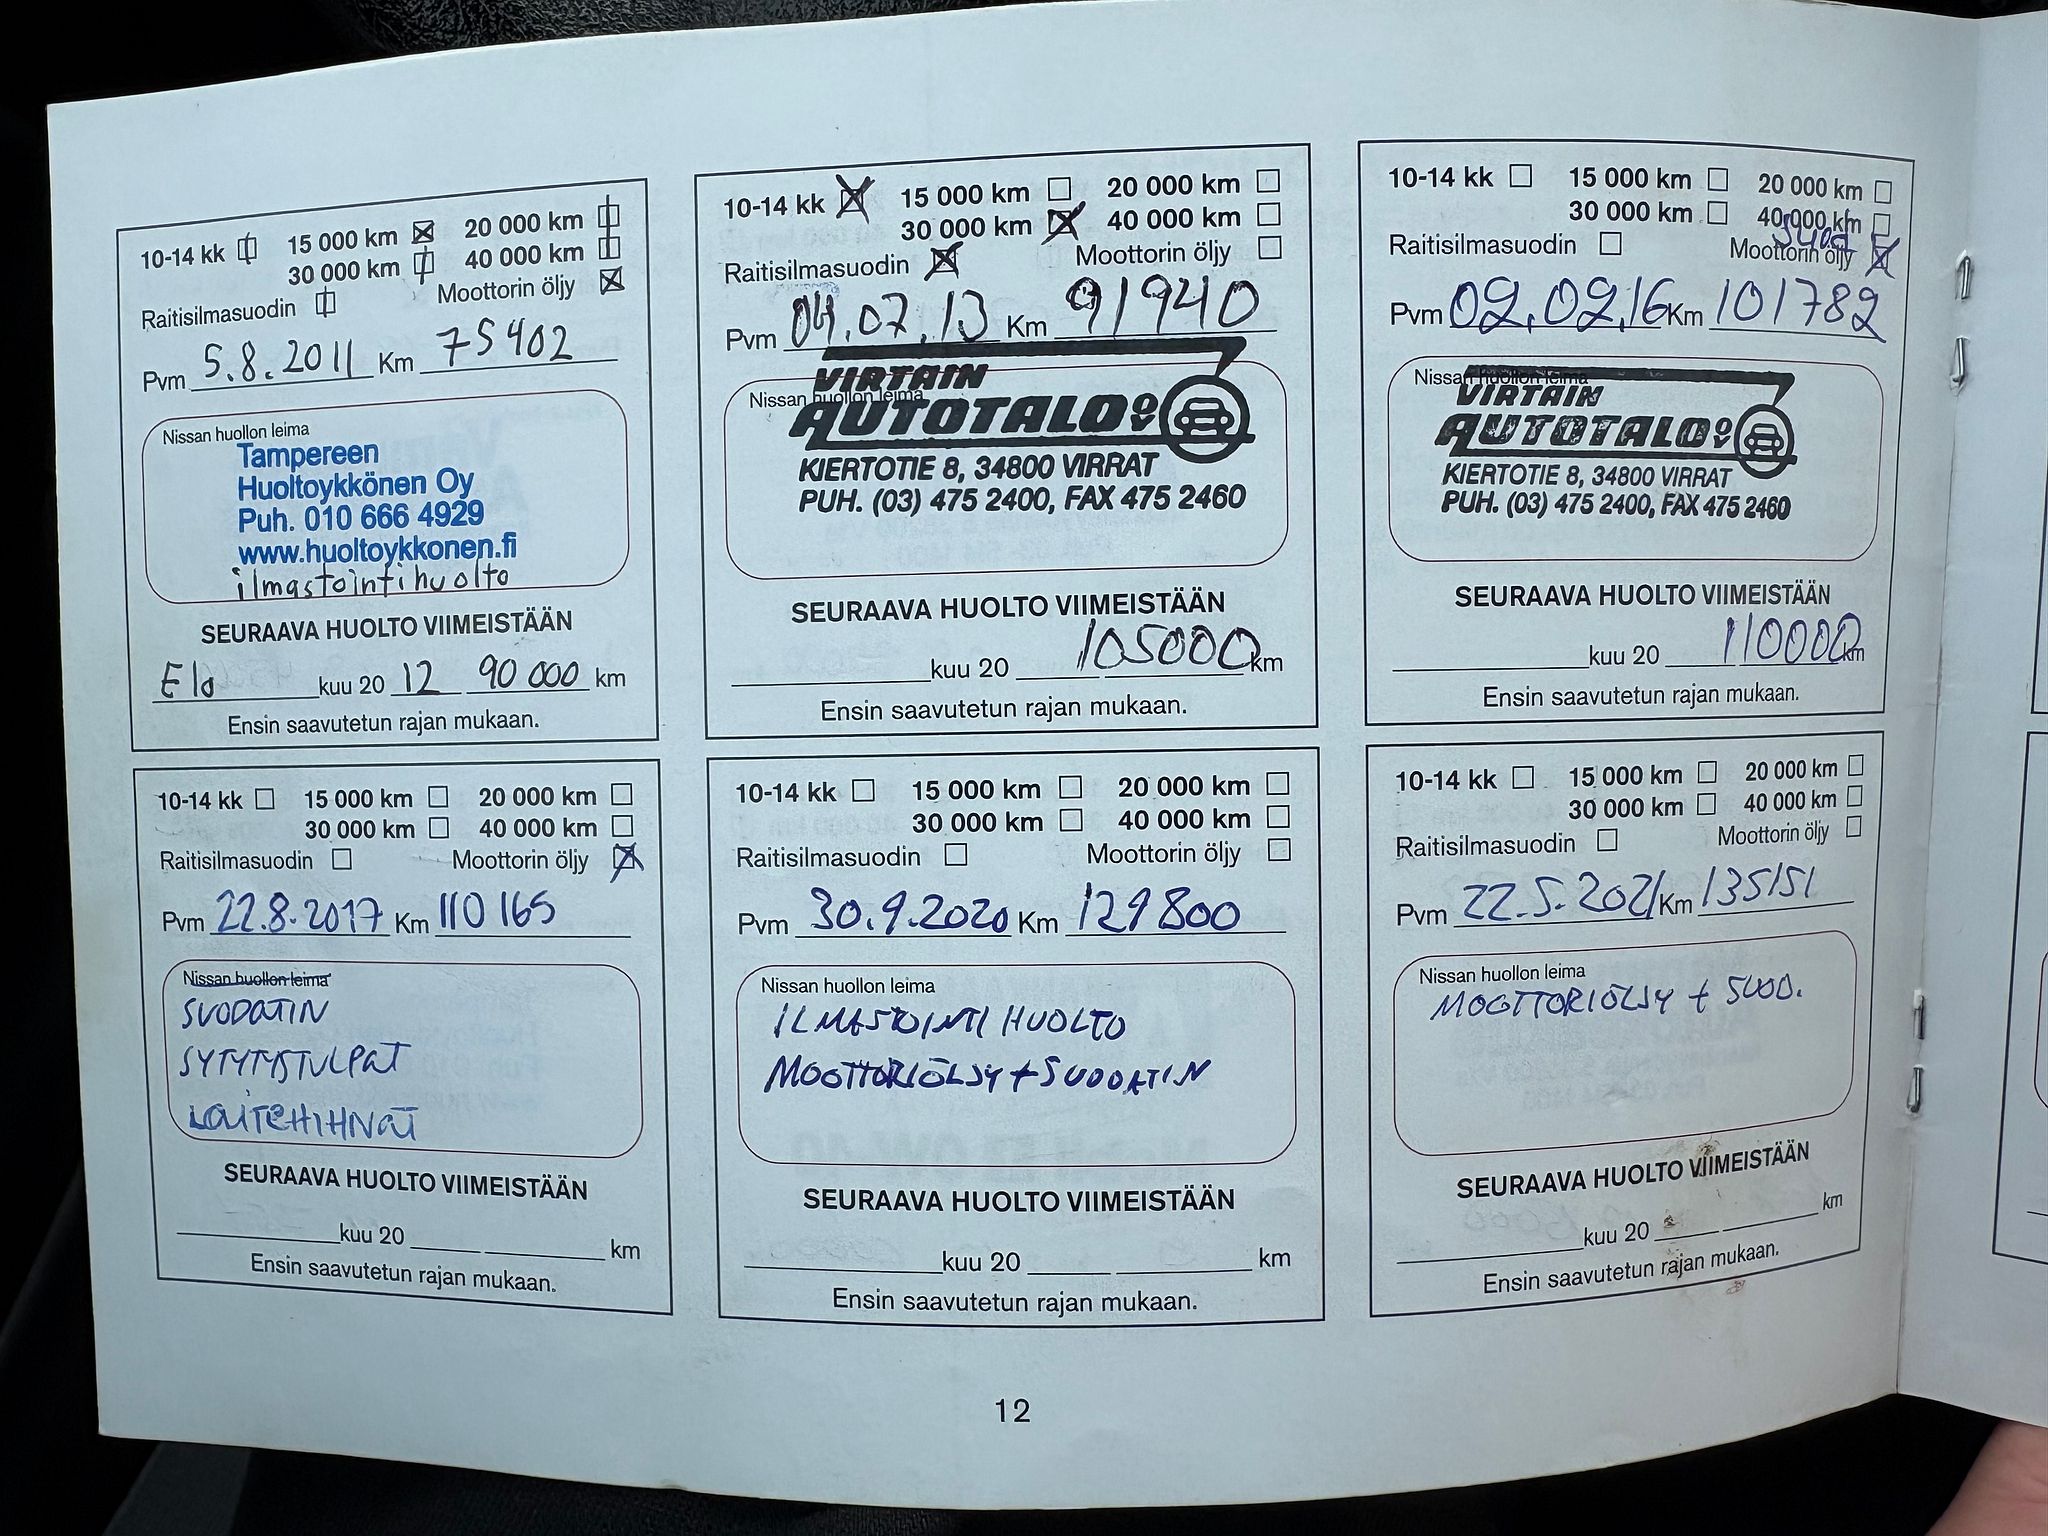 10-14 kk 15 000 km 20 000 km
30 000 km 40 000 km
Raitisilmasuodin Moottorin öljy
Pvm 5.8.2011 Km 75402
Nissan huollon leima
Tampereen
Huoltoykkönen Oy
Puh. 010 666 4929
www.huoltoykkonen.fi
ilmastointihuolto
SEURAAVA HUOLTO VIIMEISTÄÄN
Elo kuu 20 12 90 000 km
Ensin saavutetun rajan mukaan.
10-14 kk 15 000 km 20 000 km
30 000 km 40 000 km
Raitisilmasuodin Moottorin öljy
Pvm 04.07.13 Km 91940
Nissan huollon leima
VIRTAIN
AUTOTALO OY
KIERTOTIE 8, 34800 VIRRAT
PUH. (03) 475 2400, FAX 475 2460
SEURAAVA HUOLTO VIIMEISTÄÄN
kuu 20 105000 km
Ensin saavutetun rajan mukaan.
10-14 kk 15 000 km 20 000 km
30 000 km 40 000 km
Raitisilmasuodin Moottorin öljy
Pvm 02.02.16 Km 101782
Nissan huollon leima
VIRTAIN
AUTOTALO OY
KIERTOTIE 8, 34800 VIRRAT
PUH. (03) 475 2400, FAX 475 2460
SEURAAVA HUOLTO VIIMEISTÄÄN
kuu 20 110000 km
Ensin saavutetun rajan mukaan.
10-14 kk 15 000 km 20 000 km
30 000 km 40 000 km
Raitisilmasuodin Moottorin öljy
Pvm 22.8.2017 Km 110165
Nissan huollon leima
SUODATIN
SYTYTYSTULPAT
LAITEHIHNAT
SEURAAVA HUOLTO VIIMEISTÄÄN
kuu 20 km
Ensin saavutetun rajan mukaan.
10-14 kk 15 000 km 20 000 km
30 000 km 40 000 km
Raitisilmasuodin Moottorin öljy
Pvm 30.9.2020 Km 129800
Nissan huollon leima
ILMASTOINTI HUOLTO
MOOTTORIÖLJY + SUODATIN
SEURAAVA HUOLTO VIIMEISTÄÄN
kuu 20 km
Ensin saavutetun rajan mukaan.
10-14 kk 15 000 km 20 000 km
30 000 km 40 000 km
Raitisilmasuodin Moottorin öljy
Pvm 22.5.2021 Km 135151
Nissan huollon leima
MOOTTORIÖLJY + SUOD.
SEURAAVA HUOLTO VIIMEISTÄÄN
kuu 20 km
Ensin saavutetun rajan mukaan.
12